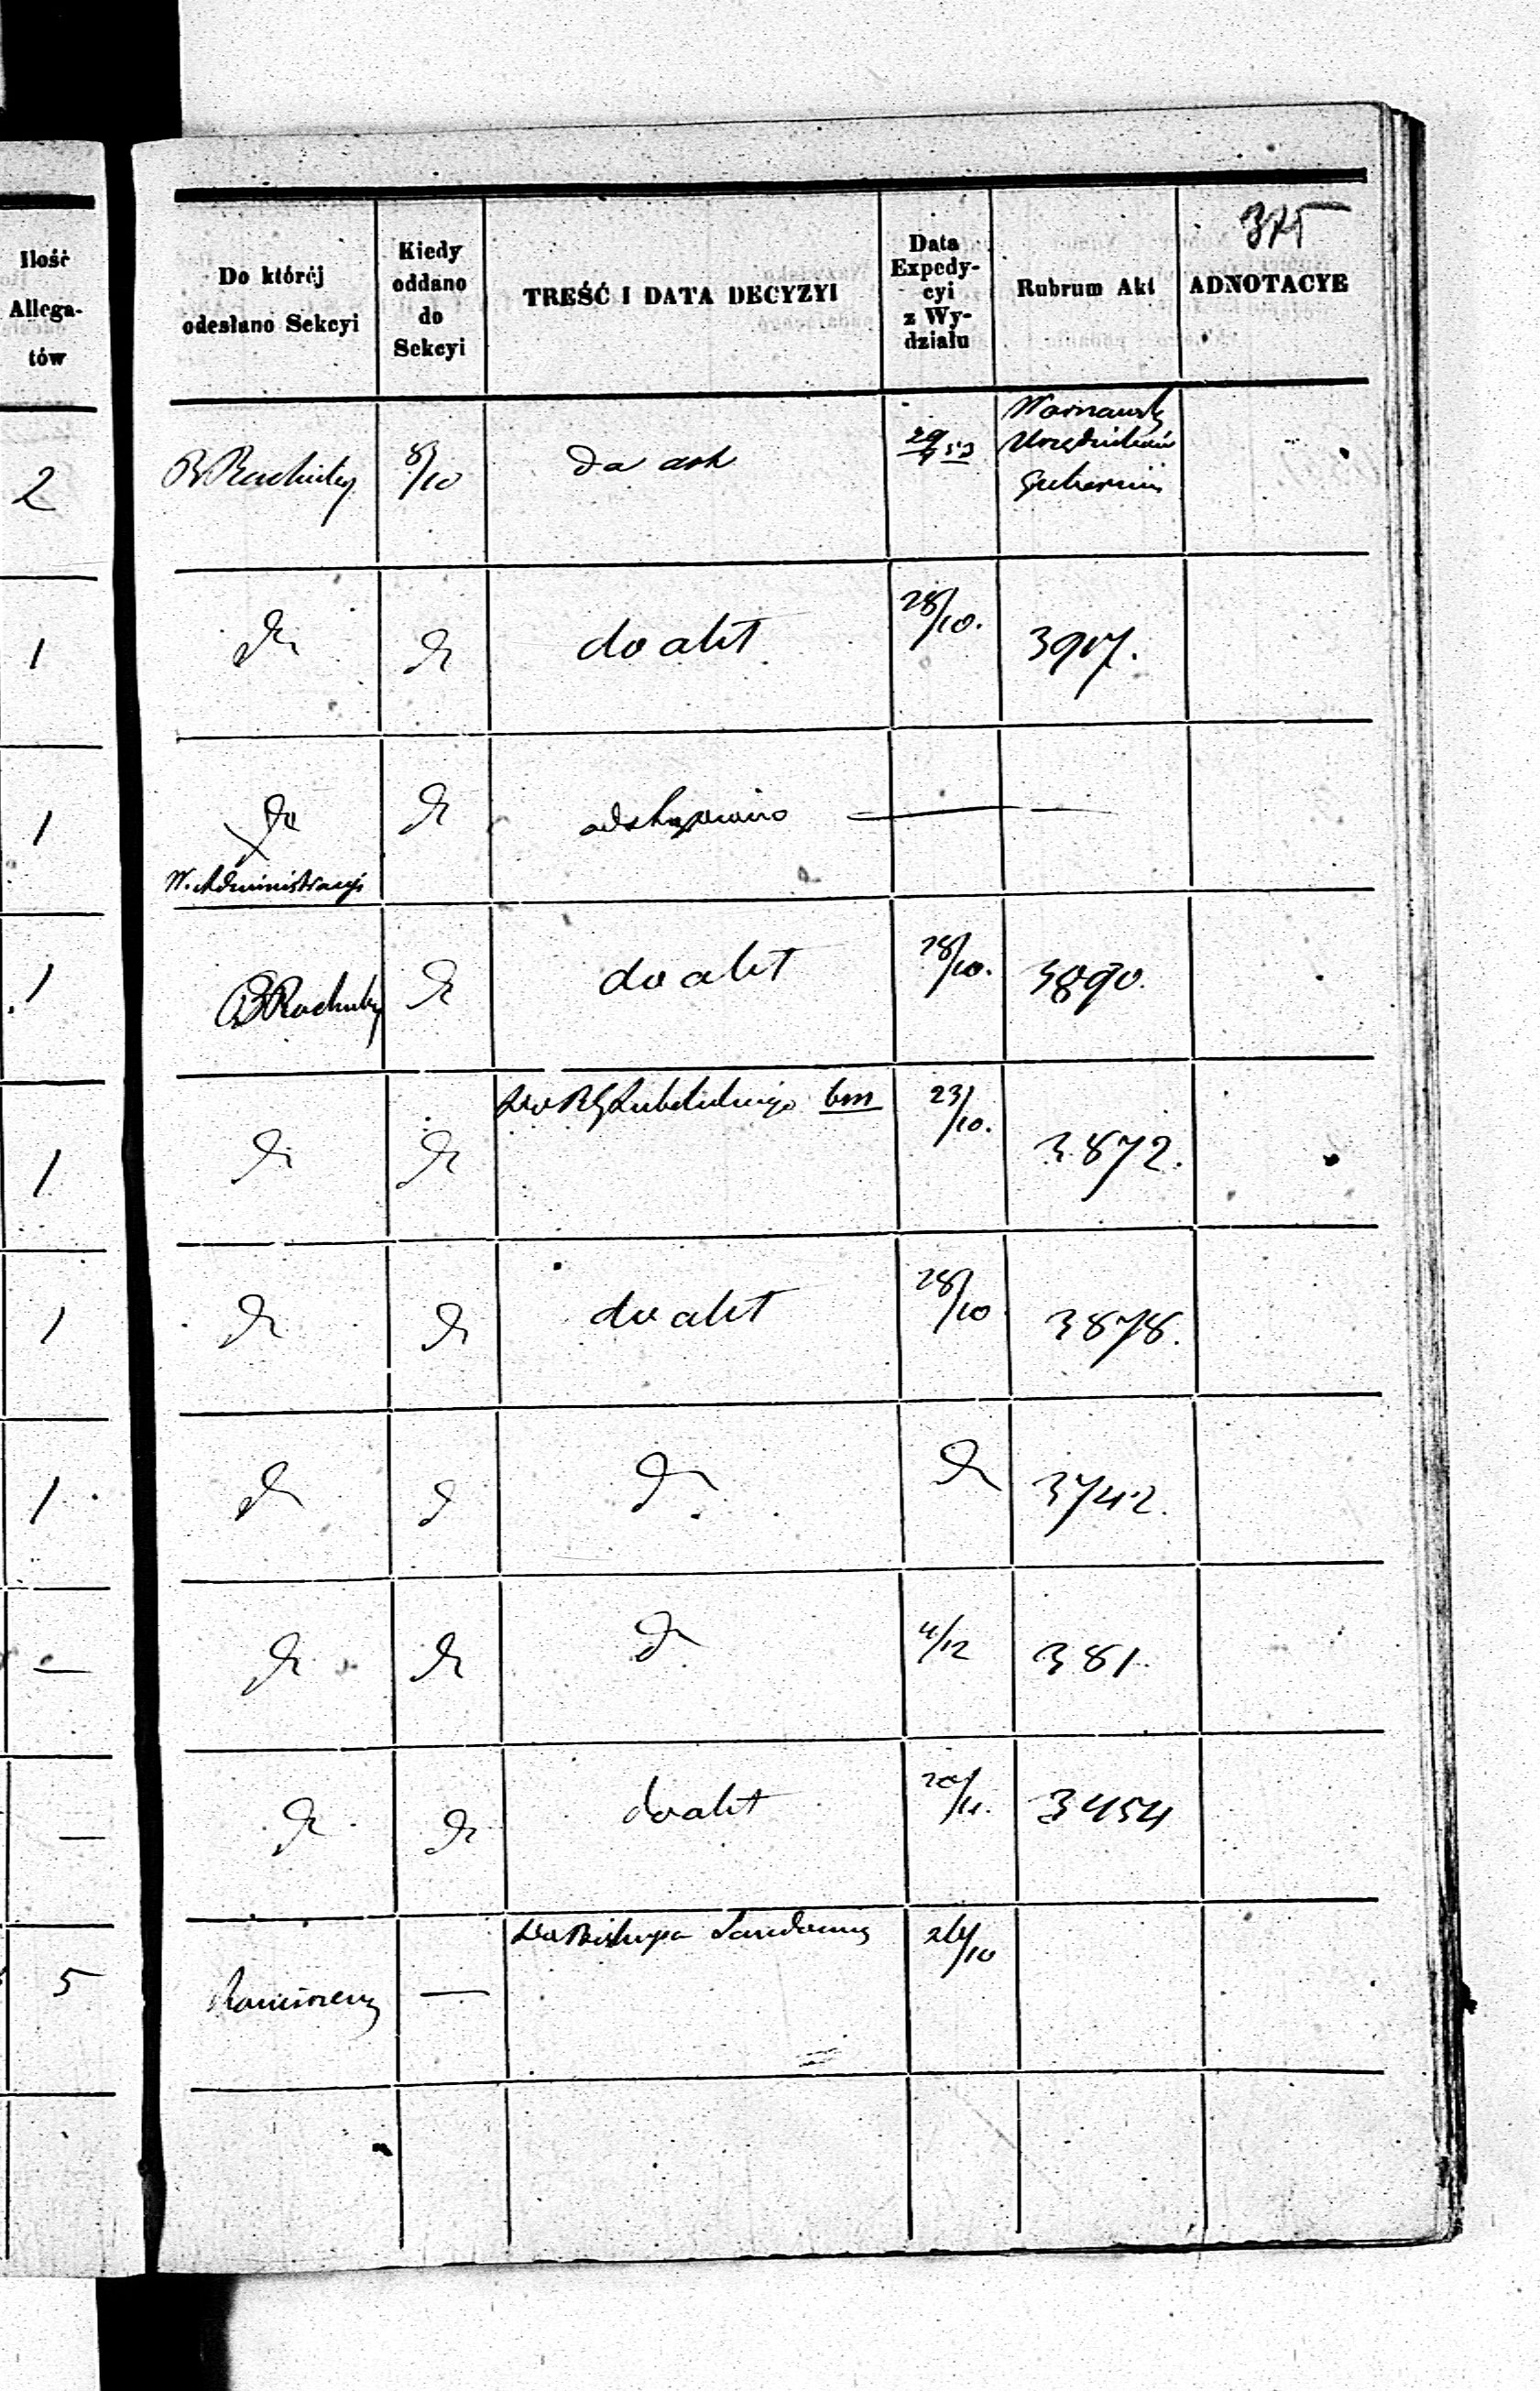 375
Ilość
Allega-
tów
Do któréj
odesłano Sekcyi
Kiedy
oddano
do
Sekcyi
TREŚĆ I DATA DECYZYI
Data
Expedy-
cyi
z Wy-
działu
Rubrum Akt
ADNOTACYE
2
B Rachuby
8/10
do akt
Urzędników
Gubernii
1
do
do
do akt
28/10.
3917.
1
do
W. Administracyi
do
odstąpiono
—
—
1
B Rachuby
do
do akt
28/10.
3890.
1
do
do
Do RG Lubelskiego bm
23/10.
3872.
1
do
do
do akt
28/10
3878.
1
do
do
do
do
3742.
—
do
do
do
4/12
381.
—
do
do
do akt
20/11.
3454
5
—
Do Biskupa
24/10